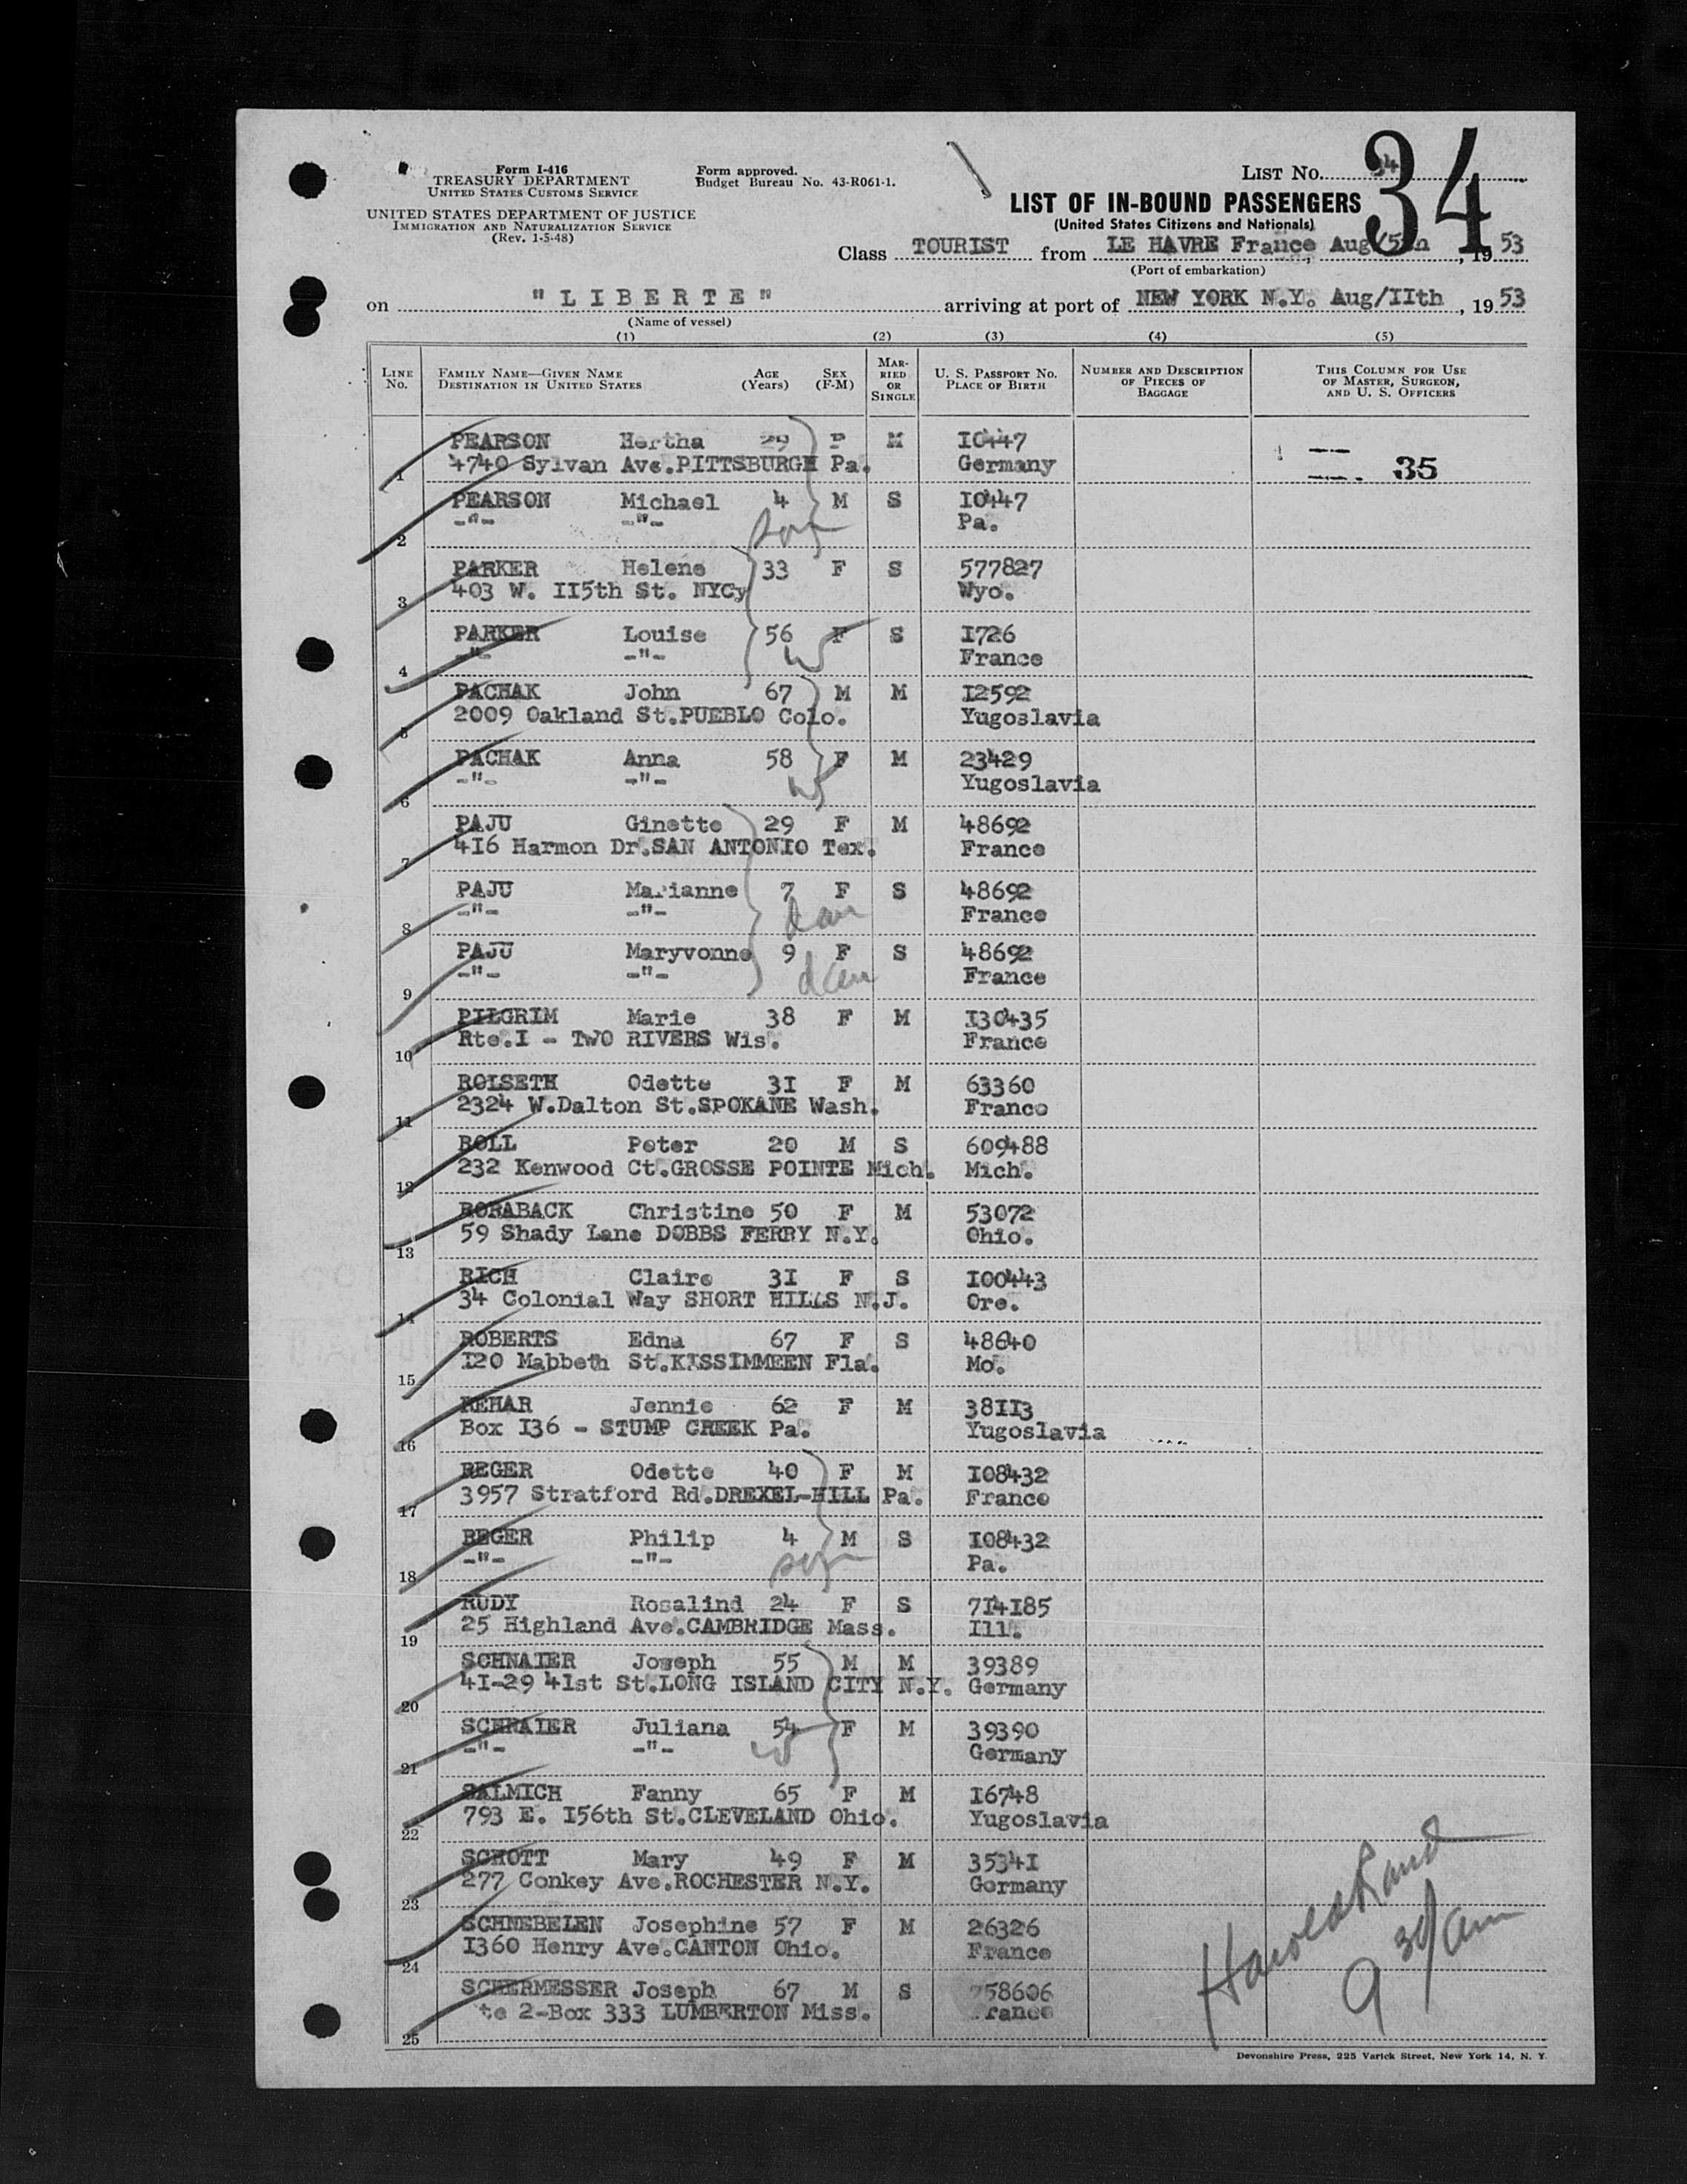 Form I-416
TREASURY DEPARTMENT
UNITED STATES CUSTOMS SERVICE
UNITED STATES DEPARTMENT OF JUSTICE
IMMIGRATION AND NATURALIZATION SERVICE
(Rev. 1-5-48)
Form approved.
Budget Bureau No. 43-R061-1.
LIST NO. 34
34
LIST OF IN-BOUND PASSENGERS
(United States Citizens and Nationals)
Class TOURIST from LE HAVRE France, Aug/5th, 1953
(Port of embarkation)
on "LIBERTE" arriving at port of NEW YORK N.Y. Aug/IIth, 1953
(Name of vessel)
(1) (2) (3) (4) (5)
LINE NO. FAMILY NAME—GIVEN NAME DESTINATION IN UNITED STATES AGE (Years) SEX (F-M) MARRIED OR SINGLE U. S. PASSPORT NO. PLACE OF BIRTH NUMBER AND DESCRIPTION OF PIECES OF BAGGAGE THIS COLUMN FOR USE OF MASTER, SURGEON, AND U. S. OFFICERS
PEARSON Hertha 29 F M I0447
1 4740 Sylvan Ave.PITTSBURGH Pa. Germany 35
PEARSON Michael 4 M S I0447
2 -"- -"- son Pa.
PARKER Helene 33 F S 577827
3 403 W. II5th St. NYCy Wyo.
PARKER Louise 56 F S I726
4 -"- -"- W France
PACHAK John 67 M M I2592
5 2009 Oakland St.PUEBLO Colo. Yugoslavia
PACHAK Anna 58 F M 23429
6 -"- -"- W Yugoslavia
PAJU Ginette 29 F M 48692
7 416 Harmon Dr.SAN ANTONIO Tex. France
PAJU Marianne 7 F S 48692
8 -"- -"- dau France
PAJU Maryvonne 9 F S 48692
9 -"- -"- dau France
PILGRIM Marie 38 F M I30435
10 Rte.I - TWO RIVERS Wis. France
ROISETH Odette 3I F M 63360
11 2324 W.Dalton St.SPOKANE Wash. France
ROLL Peter 20 M S 609488
12 232 Kenwood Ct.GROSSE POINTE Mich. Mich.
RORABACK Christine 50 F M 53072
13 59 Shady Lane DOBBS FERRY N.Y. Ohio.
RICH Claire 3I F S I00443
14 34 Colonial Way SHORT HILLS N.J. Ore.
ROBERTS Edna 67 F S 48640
15 I20 Mabbeth St.KISSIMMEEN Fla. Mo.
REHAR Jennie 62 F M 38II3
16 Box I36 - STUMP CREEK Pa. Yugoslavia
REGER Odette 40 F M I08432
17 3957 Stratford Rd.DREXEL-HILL Pa. France
REGER Philip 4 M S I08432
18 -"- -"- son Pa.
RUDY Rosalind 24 F S 7I4I85
19 25 Highland Ave.CAMBRIDGE Mass. Ill.
SCHNAIER Joseph 55 M M 39389
20 4I-29 41st St.LONG ISLAND CITY N.Y. Germany
SCHNAIER Juliana 54 F M 39390
21 -"- -"- W Germany
SALMICH Fanny 65 F M I6748
22 793 E. I56th St.CLEVELAND Ohio. Yugoslavia
SCHOTT Mary 49 F M 3534I
23 277 Conkey Ave.ROCHESTER N.Y. Germany
SCHNEBELEN Josephine 57 F M 26326
24 I360 Henry Ave.CANTON Ohio. France
SCHERMESSER Joseph 67 M S 758606
25 te 2-Box 333 LUMBERTON Miss. rance
Harold Rand
9 30/am
Devonshire Press, 225 Varick Street, New York 14, N. Y.